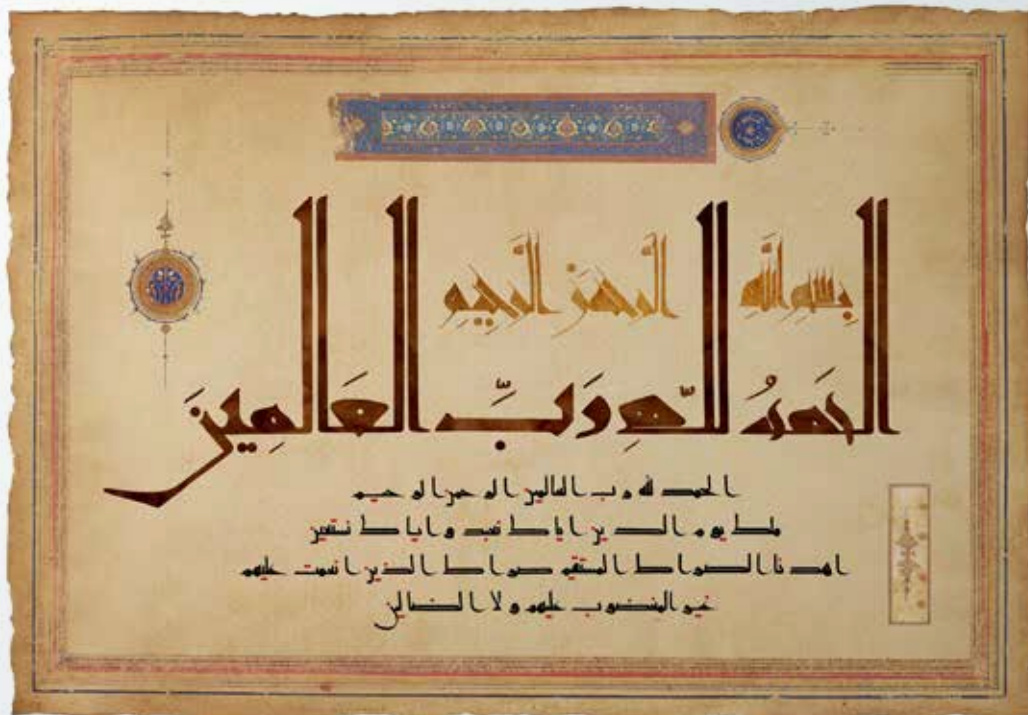 بِسْمِ اللَّهِ الرَّحْمَنِ الرَّحِيمِ
الحَمدُ للّهِ رَبِّ العَالَمِينَ
الحمد لله رب العالمين الرحمن الرحيم
ملك يوم الدين اياك نعبد واياك نستعين
اهدنا الصراط المستقيم صراط الذين انعمت عليهم
غير المغضوب عليهم ولا الضالين